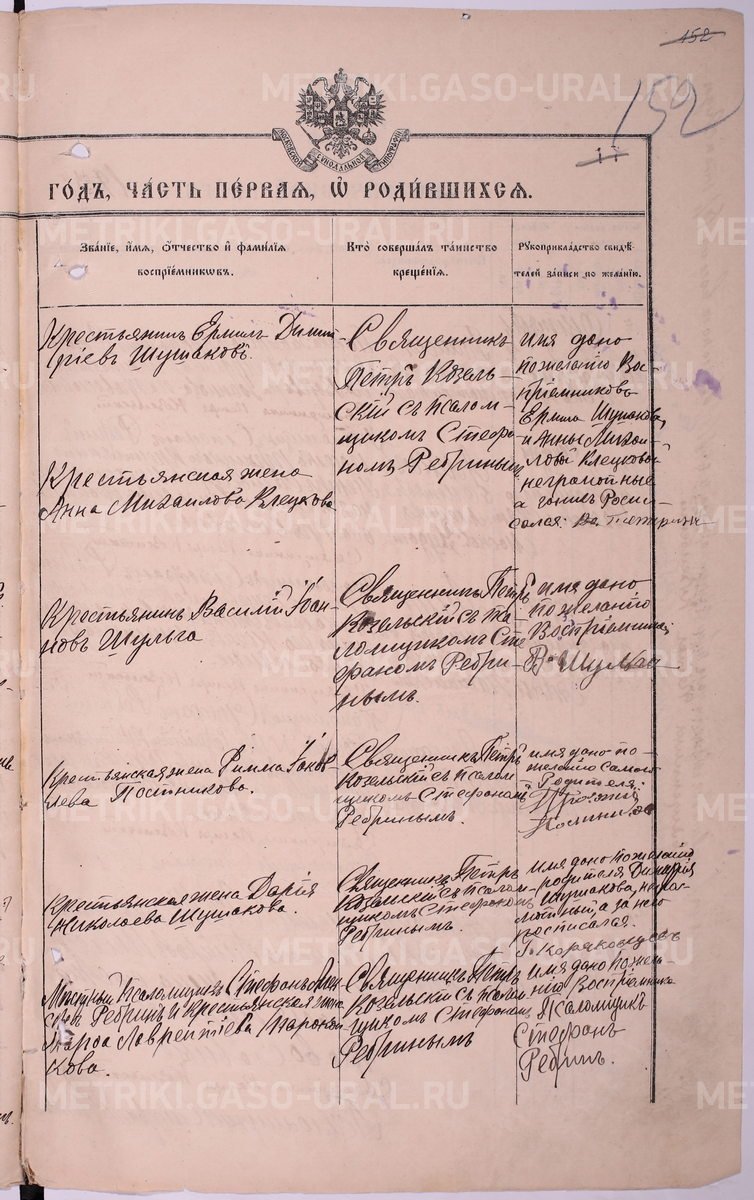 152
152
МОСКОВСКОЙ СѴНОДАЛЬНОЙ ТИПОГРАФІИ
ГОДЪ, ЧАСТЬ ПЕРВАЯ, Ѡ РОДИВШИХСЯ.
Званіе, имя, отчество и фамилія
воспріемниковъ.
Кто совершалъ таинство
крещенія.
Рукоприкладство свидѣ-
телей записи по желанію.
Крестьянинъ Ермилъ Димит
ріевъ Шушаковъ.
Крестьянская жена
Анна Михаилова Клецкова
Священникъ
Петръ Козель-
скій съ псалом-
щикомъ Стефа-
номъ Ребринымъ
имя дано
по желанію Вос-
пріемниковъ
Ермила Шушакова,
и Анны Михаи-
ловой Клецковой
неграмотные
а за нихъ Роспи
сался:
Крестьянинъ Василій Іоан-
новъ Шульга
Священникъ Петръ
Козельскій съ пса
ломщикомъ Сте
фаномъ Ребри-
нымъ.
имя дано
по желанію
Воспріемника
Крестьянская жена Римма Іаков
лева Постникова.
Священникъ Петръ
Козельскій съ псалом-
щикомъ Стефаномъ
Ребринымъ.
имя дано по-
желанію самого
Родителя:
Крестьянская жена Дарія
Николаева Шушакова.
Священникъ Петръ
Козельскій съ псалом-
щикомъ Стефаномъ
Ребринымъ.
имя дано по желанію
родителя Димитрія
Шушакова, неграм-
отный, а за него
росписался.
Мѣстный Псаломщикъ Стефанъ
Ребринъ и крестьянская жена
Лаврентіева
кова.
Священникъ Петръ
Козельскій съ псалом
щикомъ Стефаномъ
Ребринымъ
имя дано по жела-
нію Воспріемника
Псаломщикъ
Стефанъ
Ребринъ.
METRIKI.GASO-URAL.RU